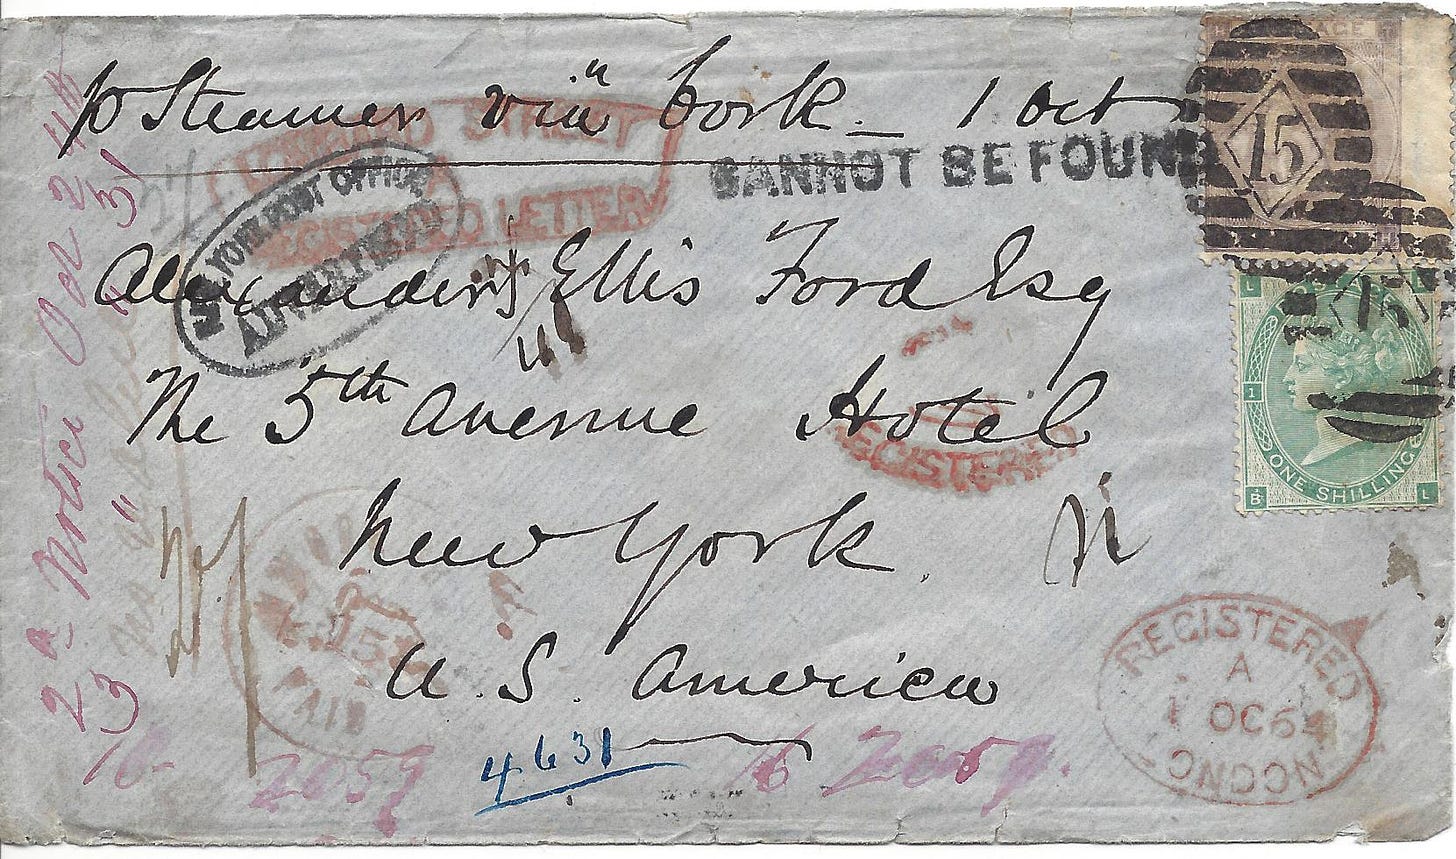 p Steamer via Cork _ 1 Oct
LOMBARD STREET
REGISTERED LETTER
CANNOT BE FOUND
NEW YORK POST OFFICE
ADVERTISED
15
Alexander Ellis Ford Esq
The 5th Avenue Hotel
REGISTERED
New York
U. S. America
ONE SHILLING
L
1
B L
REGISTERED
A
1 OC 64
LONDON
2d Notice Oct 24th
3 " " 31
PAID
2059
4631
16 2059.